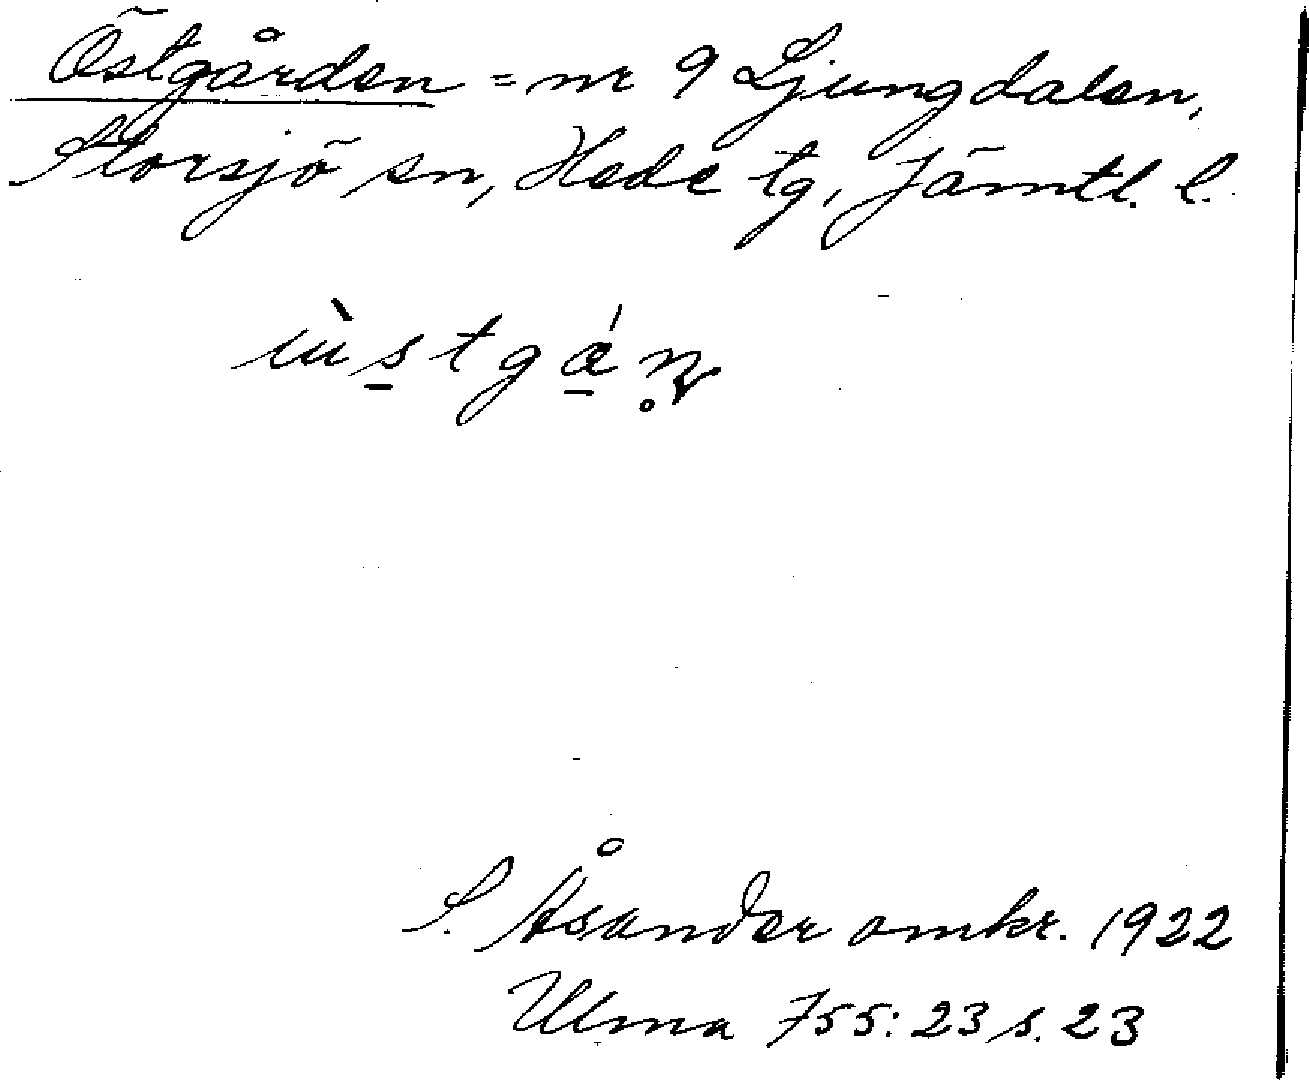 Östgården = nr 9 Ljungdalen,
Storsjö sn, Hede tg, Jämtl. l.
S. Åsander omkr. 1922
Ulma 755:23 s. 23